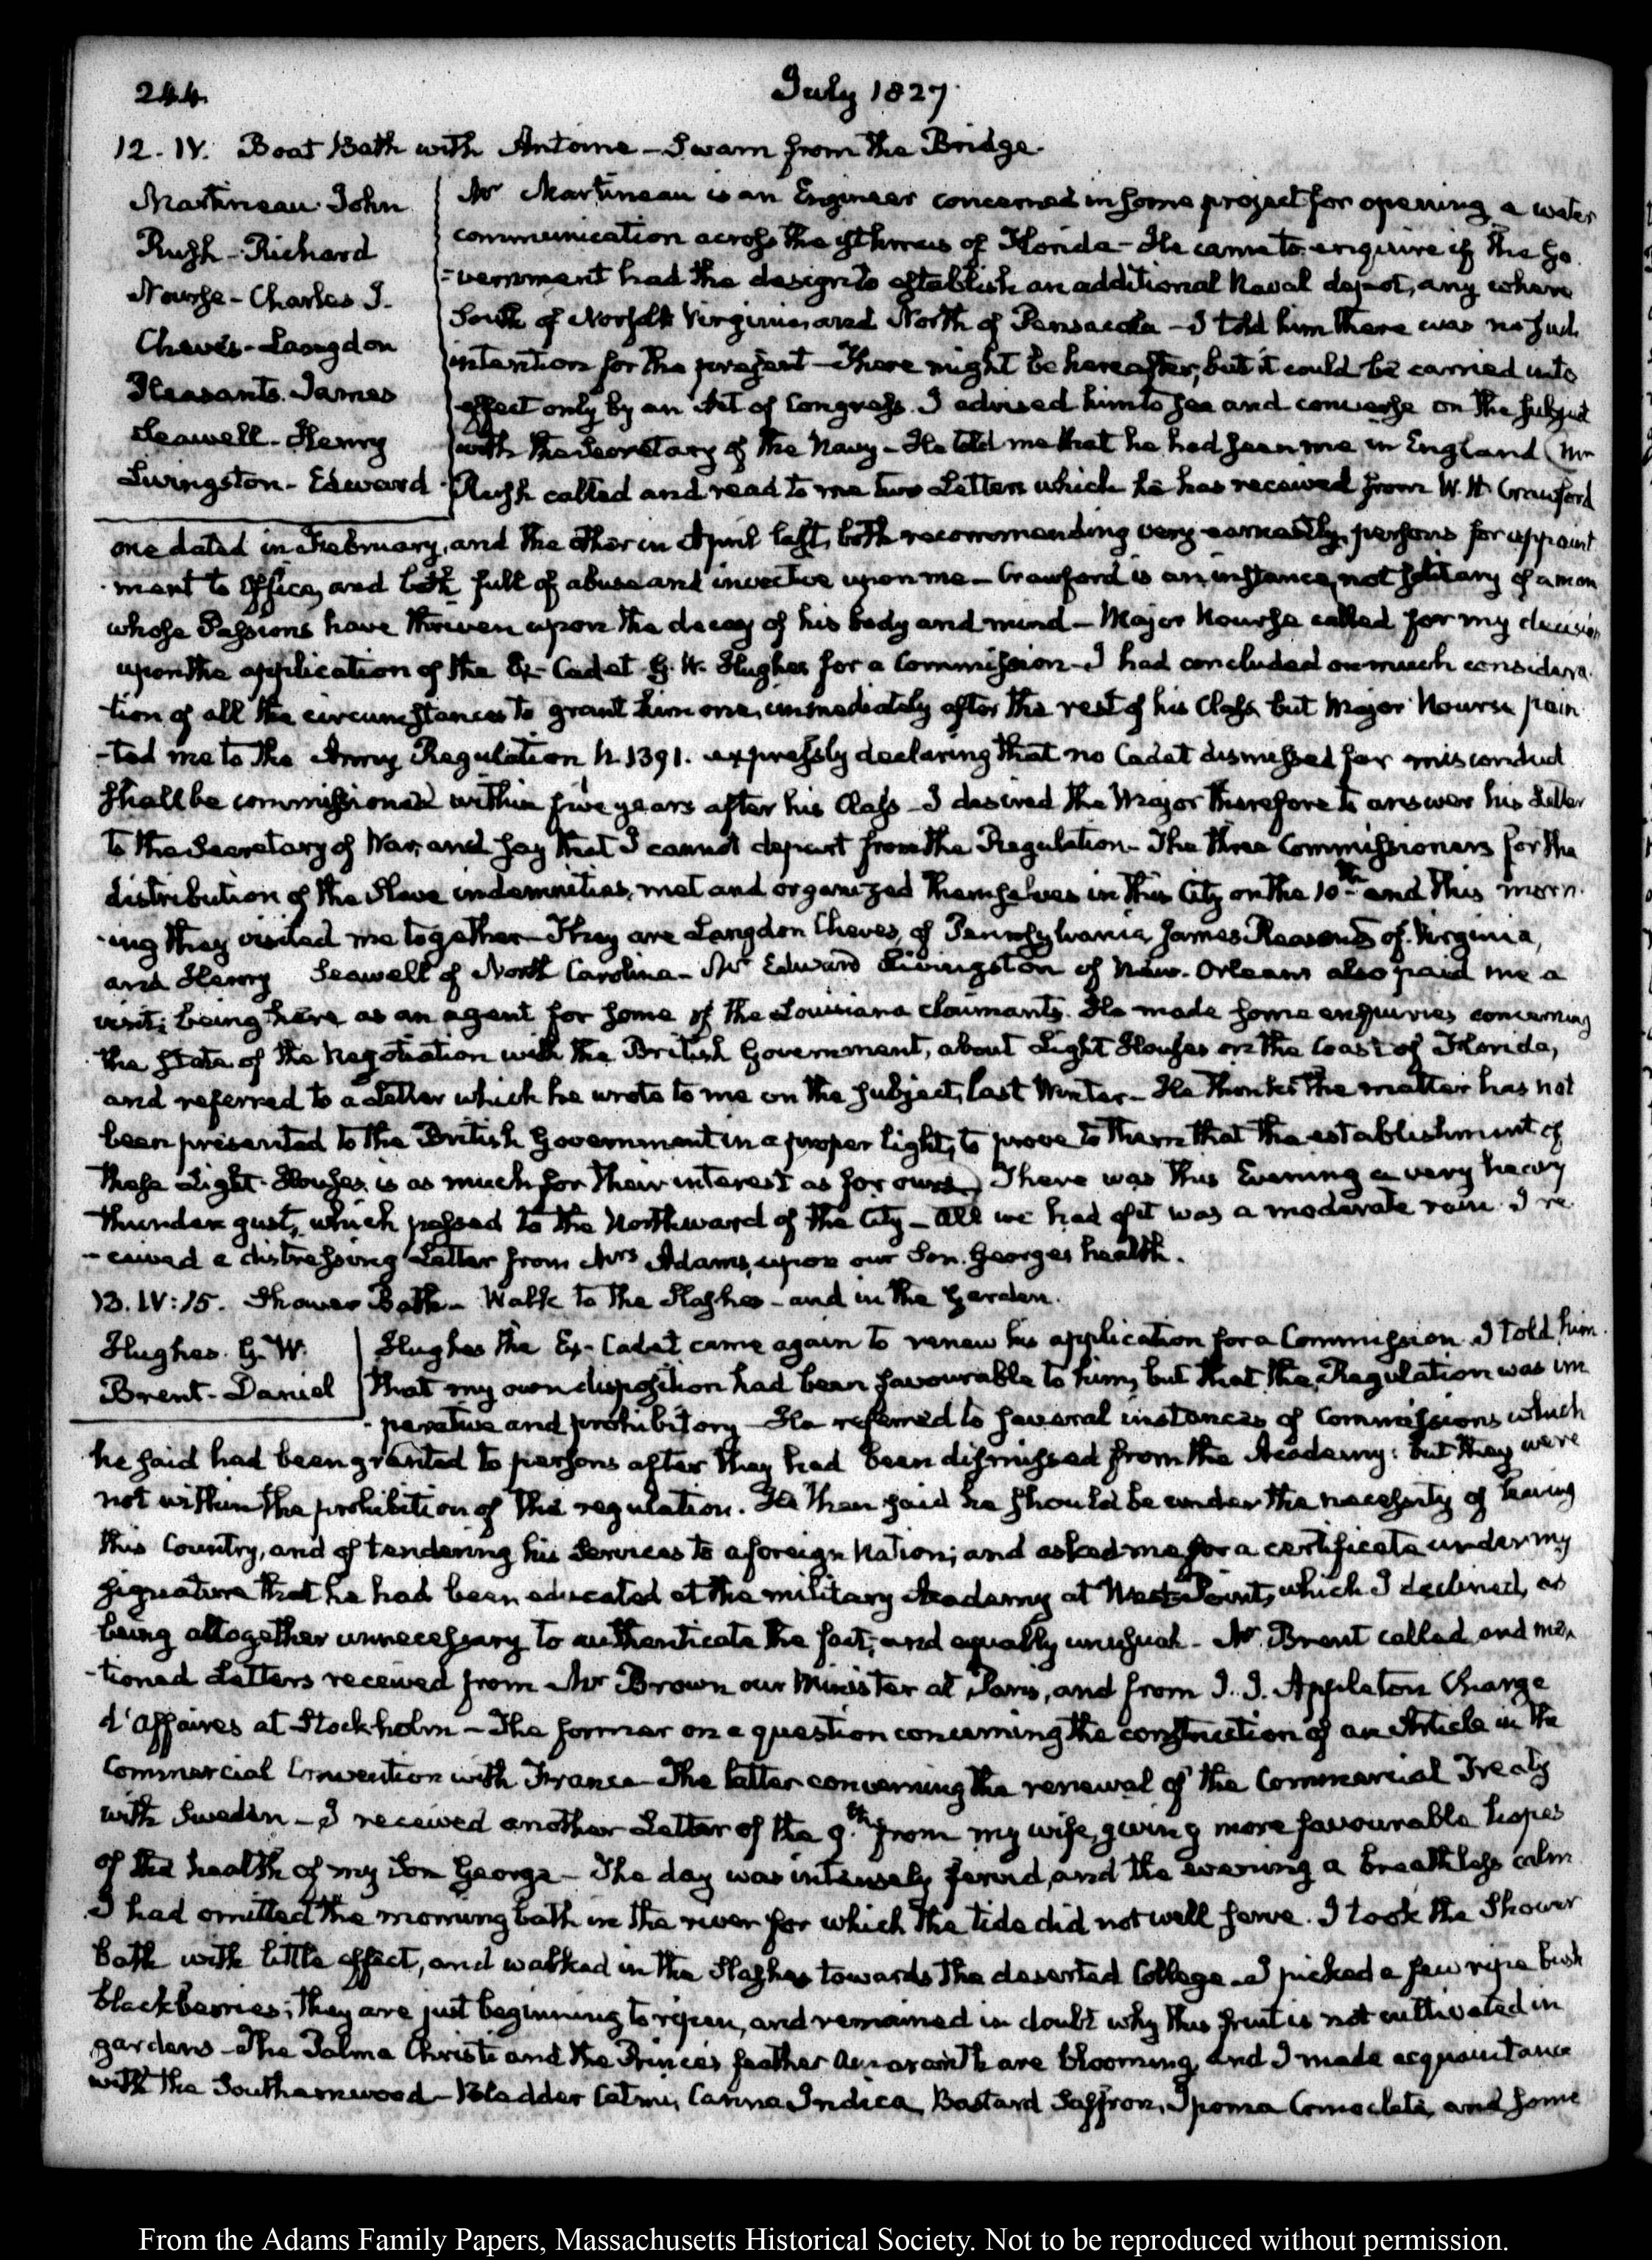 244.
July 1827.
12. IV. Boat Bath with Antoine – Swam from the Bridge.
Martineau. John
Rush – Richard
Nourse – Charles J.
Cheves – Langdon
Pleasants. James
Seawell – Henry
Livingston – Edward
Mr Martineau is an Engineer concerned in some project for opening a water
communication across the isthmus of Florida – He came to enquire if the Go
-vernment had the design to establish an additional Naval depot, any where
South of Norfolk Virginia, and North of Pensacola – I told him there was no such
intention for the present – There might be hereafter, but it could be carried into
effect only by an Act of Congress. I advised him to see and converse on the subject
with the Secretary of the Navy – He told me that he had seen me in England (Mr
Rush called and read to me two Letters which he has received from W. H. Crawford
one dated in February, and the other in April last, both recommending very earnestly, persons for appoint
-ment to Office, and both full of abuse and invective upon me – Crawford is an instance, not solitary of a man
whose Passions have thriven upon the decay of his body and mind – Major Nourse called for my decision
upon the application of the Ex-Cadet G. W. Hughes for a Commission – I had concluded on much considera
-tion of all the circumstances to grant him one, immediately after the rest of his Class but Major Nourse poin
-ted me to the Army Regulation N. 1391. expressly declaring that no Cadet dismissed for misconduct
shall be commissioned within five years after his Class – I desired the Major therefore to answer his Letter
to the Secretary of War, and say that I cannot depart from the Regulation – The three Commissioners for the
distribution of the Slave indemnities, met and organized themselves in this City on the 10th and this morn
-ing they visited me together – They are Langdon Cheves, of Pennsylvania, James Pleasants of Virginia,
and Henry Seawell of North Carolina – Mr Edward Livingston of New-Orleans also paid me a
visit; being here as an agent for some of the Louisiana claimants. He made some enquiries concerning
the state of the Negotiation with the British Government, about Light Houses on the Coast of Florida,
and referred to a Letter which he wrote to me on the subject, last Winter – He thinks the matter has not
been presented to the British Government in a proper light, to prove to them that the establishment of
these Light-Houses is as much for their interest as for ours) There was this Evening a very heavy
thunder gust, which passed to the Northward of the City – All we had of it was a moderate rain. I re
-ceived a distressing Letter from Mrs Adams, upon our Son Georges health.
13. IV:15. Shower Bath – Walk to the Slashes – and in the Garden.
Hughes. G. W.
Brent – Daniel
Hughes the Ex-Cadet came again to renew his application for a Commission. I told him
that my own disposition had been favourable to him, but that the Regulation was im
-perative and prohibitory – He referred to several instances of Commissions which
he said had been granted to persons after they had been dismissed from the Academy: but they were
not within the prohibition of the regulation. He then said he should be under the necessity of leaving
this Country, and of tendering his Services to a foreign Nation; and asked me for a certificate under my
signature that he had been educated at the military Academy at West-Point, which I declined, as
being altogether unnecessary to authenticate the fact, and equally unusual – Mr Brent called and men
-tioned Letters received from Mr Brown our Minister at Paris, and from J. J. Appleton Charge
d'Affaires at Stockholm – The former on a question concerning the construction of an Article in the
Commercial Convention with France – The latter concerning the renewal of the Commercial Treaty
with Sweden – I received another Letter of the 9th from my wife, giving more favourable hopes
of the health of my Son George – The day was intensely fervid, and the evening a breathless calm
I had omitted the morning bath in the river for which the tide did not well serve. I took the Shower
Bath with little effect, and walked in the Slashes towards the deserted College – I picked a few ripe bush
blackberries; they are just beginning to ripen, and remained in doubt why this fruit is not cultivated in
gardens – The Palma Christi and the Princes feather Amaranth are blooming, and I made acquaintance
with the Southernwood – Bladder Catmi, Canna Indica, Bastard Saffron, Ipoma Comoclete, and some
From the Adams Family Papers, Massachusetts Historical Society. Not to be reproduced without permission.